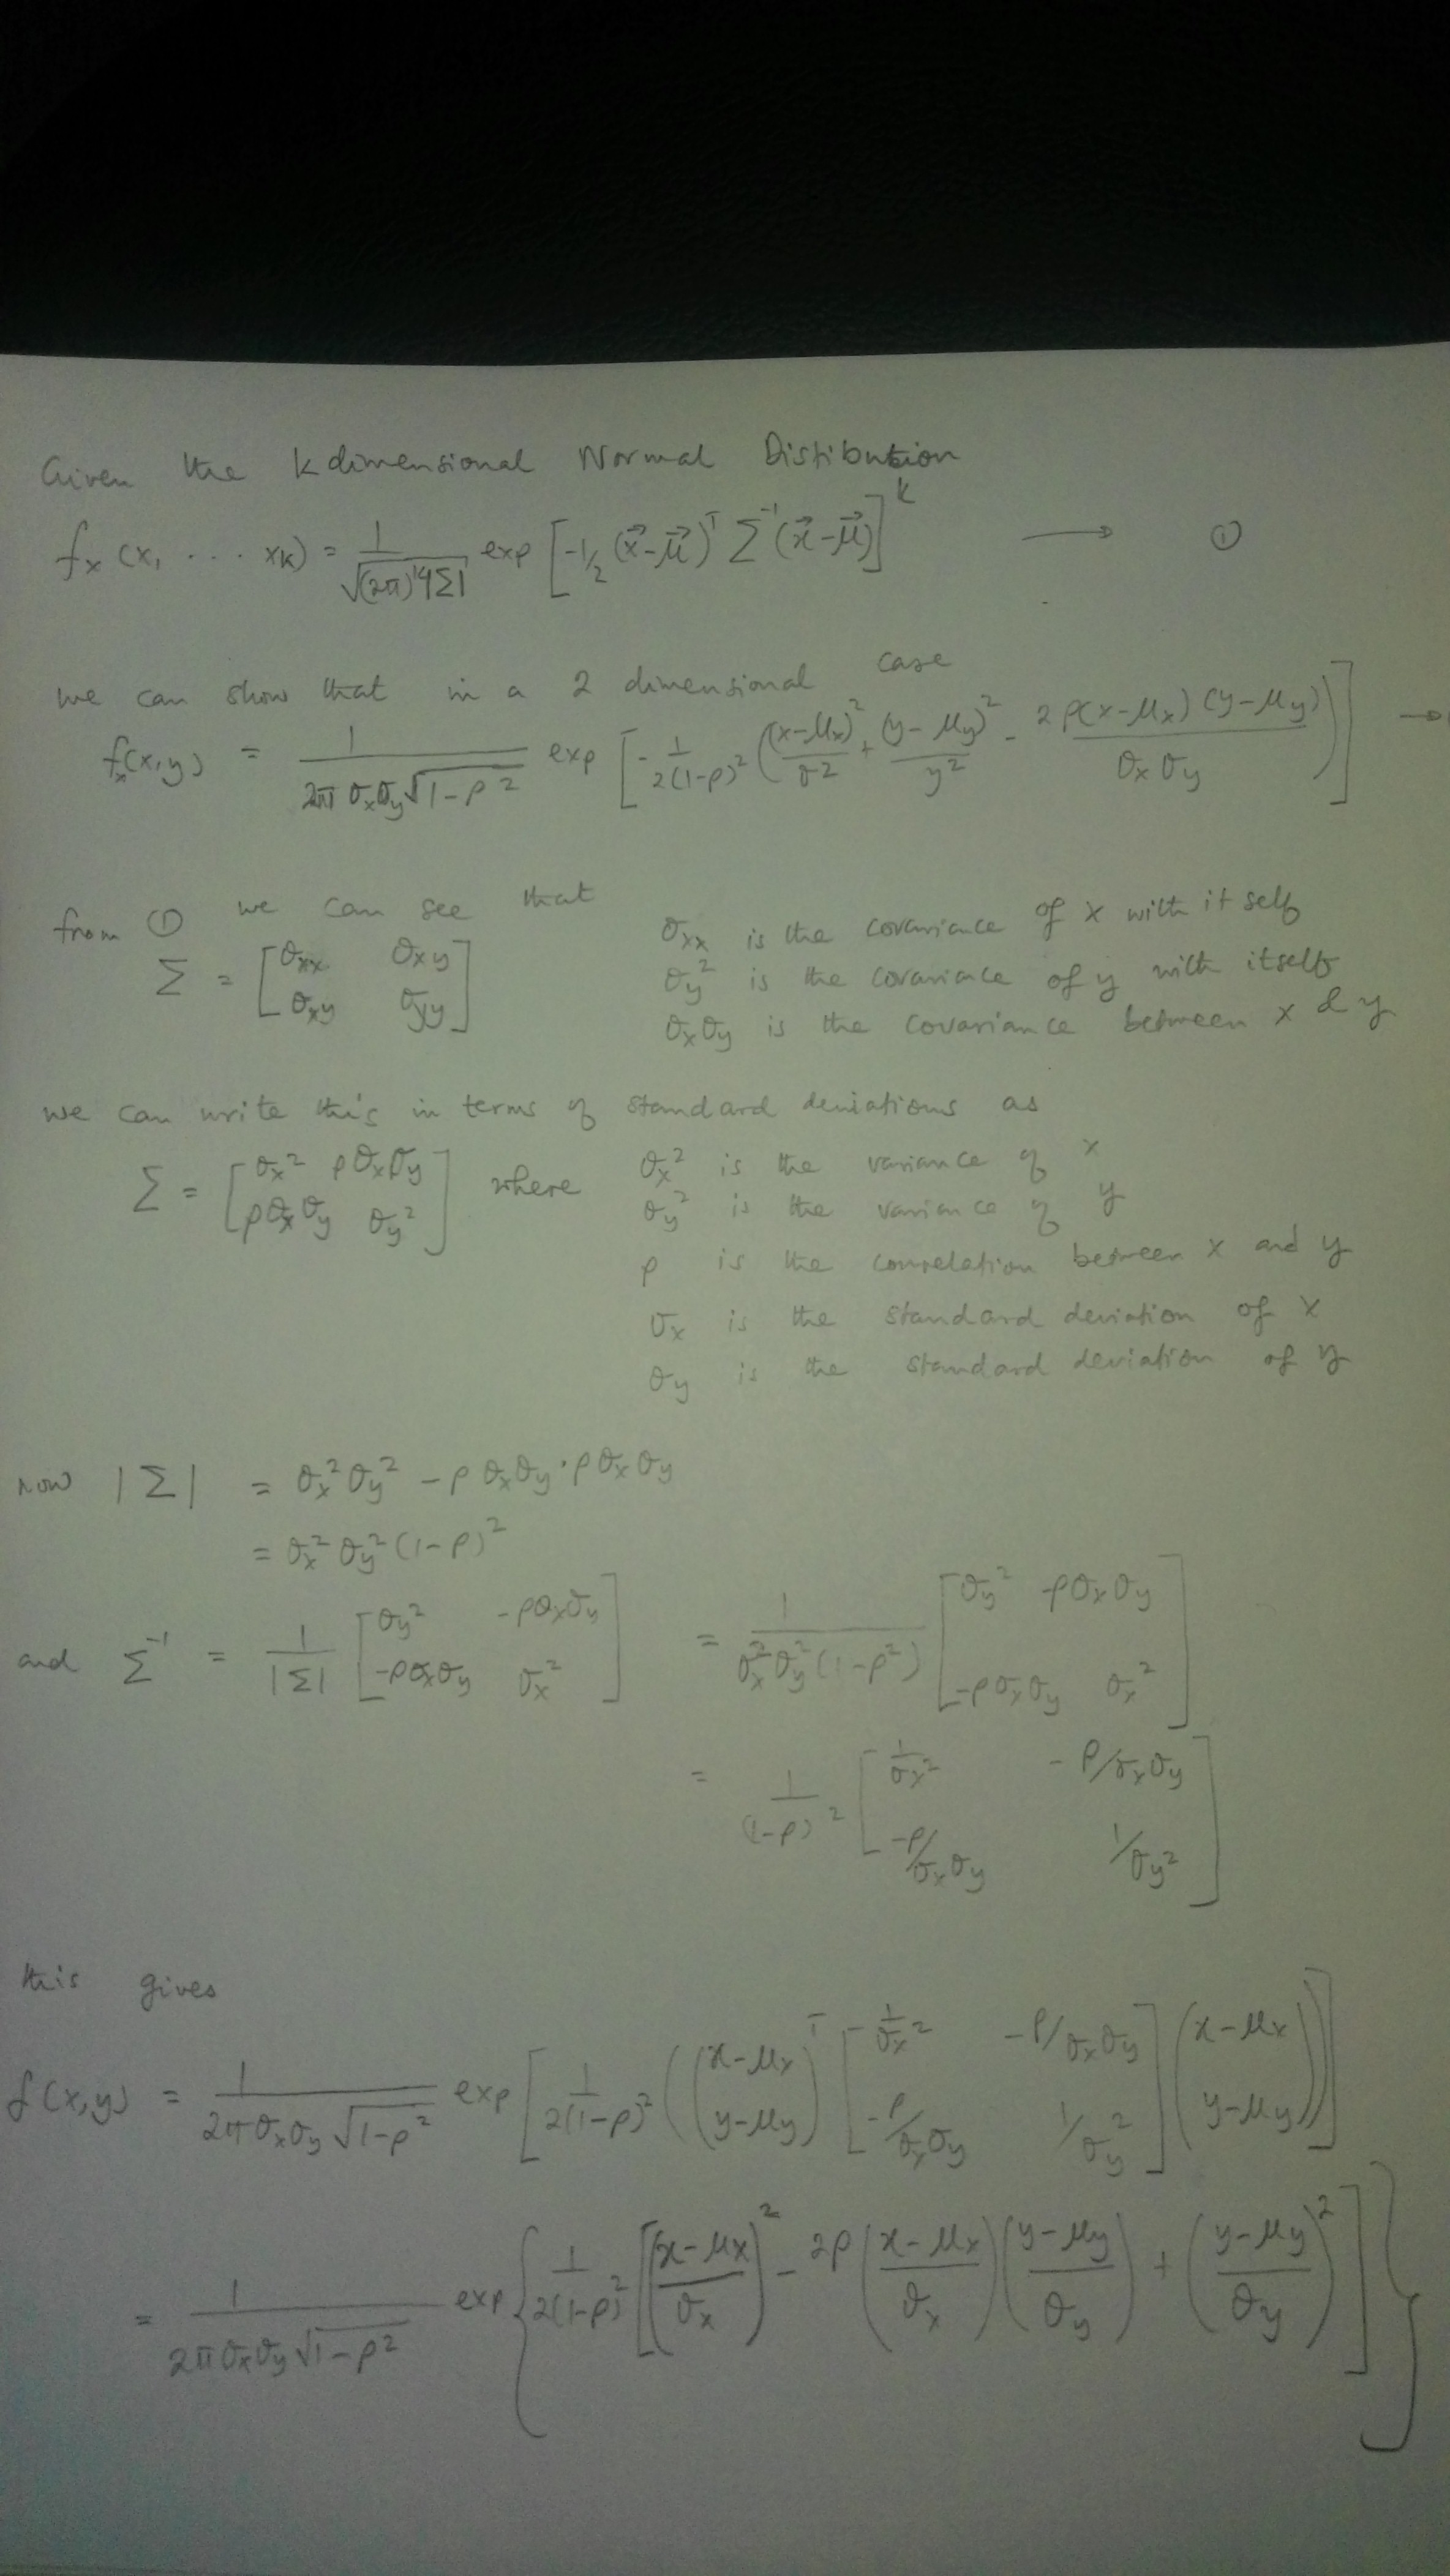 Given the k dimensional Normal Distibution
fx (x, . . . xk) = 1/√((2π)^k|Σ|) exp [-1/2 (x⃗-μ⃗)^T Σ^-1 (x⃗-μ⃗)]^k → ①
we can show that in a 2 dimensional case
fx(x,y) = 1/(2π σx σy √(1-ρ^2)) exp [-1/(2(1-ρ)^2) ((x-μx)^2/σ^2 + (y-μy)^2/y^2 - 2ρ(x-μx)(y-μy)/(σx σy))] →
from ① we can see that
Σ = [σxx σxy; σxy σyy]
σxx is the covariance of x with it self
σy^2 is the covariance of y with itself
σxσy is the covariance between x & y
we can write this in terms of standard deviations as
Σ = [σx^2 ρσxσy; ρσxσy σy^2] where σx^2 is the variance of x
σy^2 is the variance of y
ρ is the correlation between x and y
σx is the standard deviation of x
σy is the standard deviation of y
now |Σ| = σx^2 σy^2 - ρσxσy · ρσxσy
= σx^2 σy^2 (1-ρ)^2
and Σ^-1 = 1/|Σ| [σy^2 -ρσxσy; -ρσxσy σx^2] = 1/(σx^2 σy^2 (1-ρ^2)) [σy^2 -ρσxσy; -ρσxσy σx^2]
= 1/(1-ρ)^2 [1/σx^2 -ρ/σxσy; -ρ/σxσy 1/σy^2]
this gives
f(x,y) = 1/(2πσxσy√(1-ρ^2)) exp [1/(2(1-ρ)^2) ((x-μx; y-μy)^T [1/σx^2 -ρ/σxσy; -ρ/σxσy 1/σy^2] (x-μx; y-μy))]
= 1/(2πσxσy√(1-ρ^2)) exp {1/(2(1-ρ)^2) [((x-μx)/σx)^2 - 2ρ((x-μx)/σx)((y-μy)/σy) + ((y-μy)/σy)^2]}